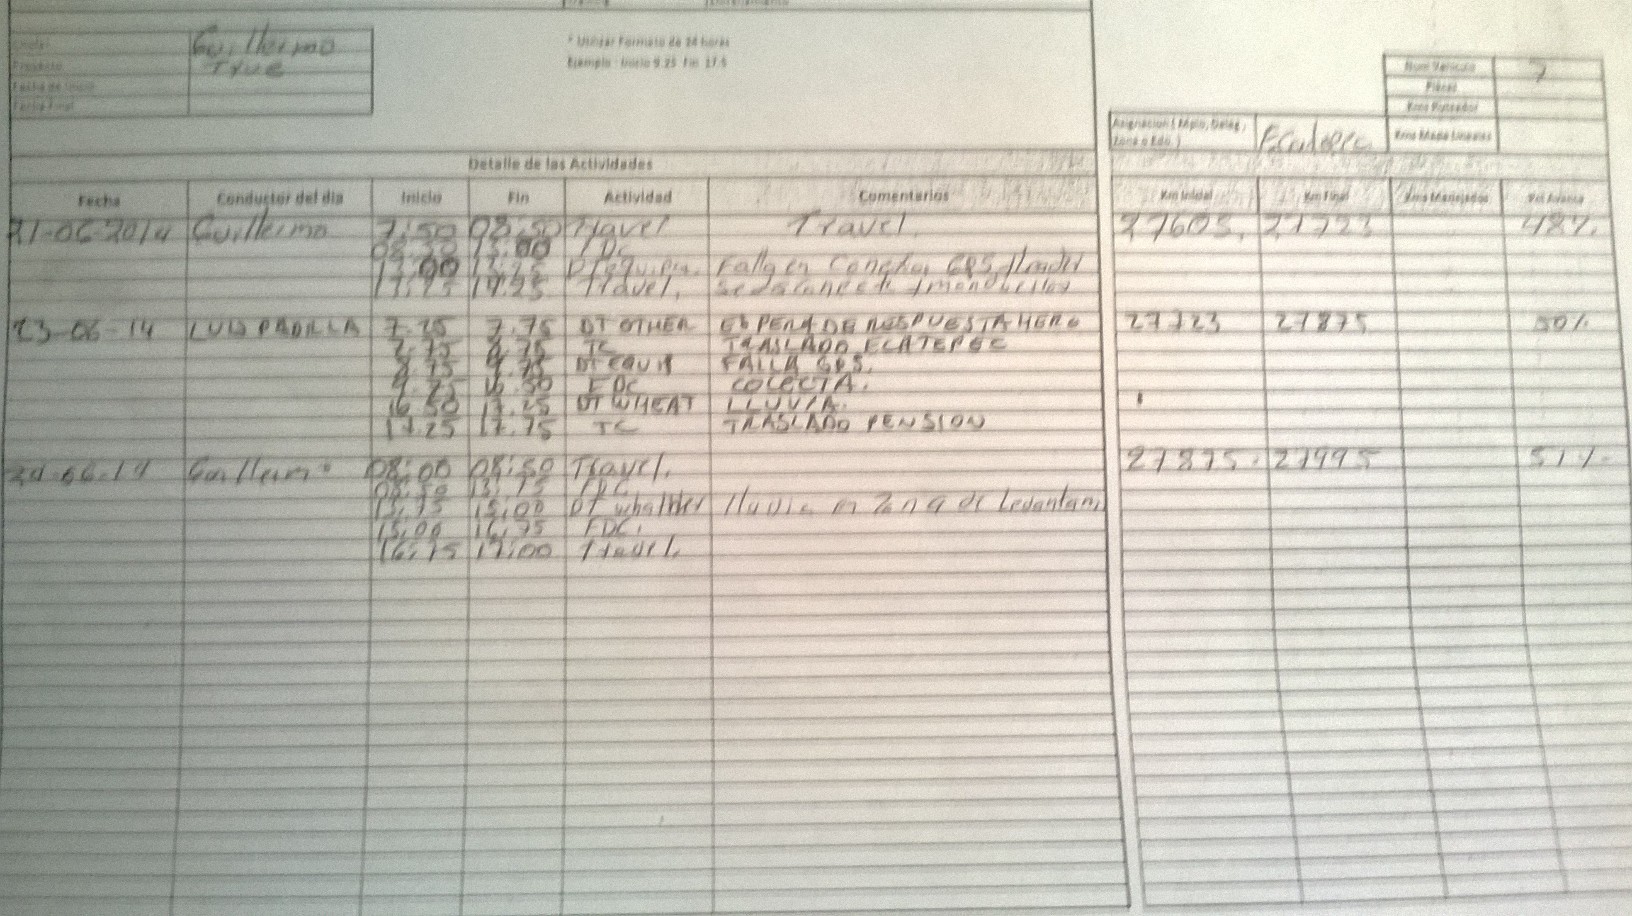 Guillermo
True
* Utilizar Formato de 24 horas
Ejemplo: Inicio 9.25 Fin 17.5
Num Vehiculo 7
Placas
Kms Ruteador
Asignacion ( Mpio, Deleg, Zona o Edo. ) Ecatepec Kms Mapa Lineales
Detalle de las Actividades
Fecha Conductor del dia Inicio Fin Actividad Comentarios Km Inicial Km Final Kms Manejados
21-06-2014 Guillermo 7:50 08:50 Travel Travel. 27605. 27723 48%.
08:50 13:00 FDC
13:00 Falla en Conectar GPS
17:25 Travel.
23-06-14 LUIS PADILLA 7.25 7.75 DT OTHER ESPERA DE RESPUESTA HERE 27723 27875 50%
7.75 8.75 TC TRASLADO ECATEPEC
8.75 9.75 DT EQUIP FALLA GPS.
9.75 16.50 FDC COLECTA.
16.50 17.25 DT WHEAT LLUVIA.
17.25 17.75 TC TRASLADO PENSION
24-06-14 Guillermo 08:00 08:50 Travel. 27875. 27995 51%.
08:50 13:75 FDC
13:75 15:00 DT whather lluvia en zona de Levantam
15:00 16:75 FDC.
16:75 17:00 Travel.